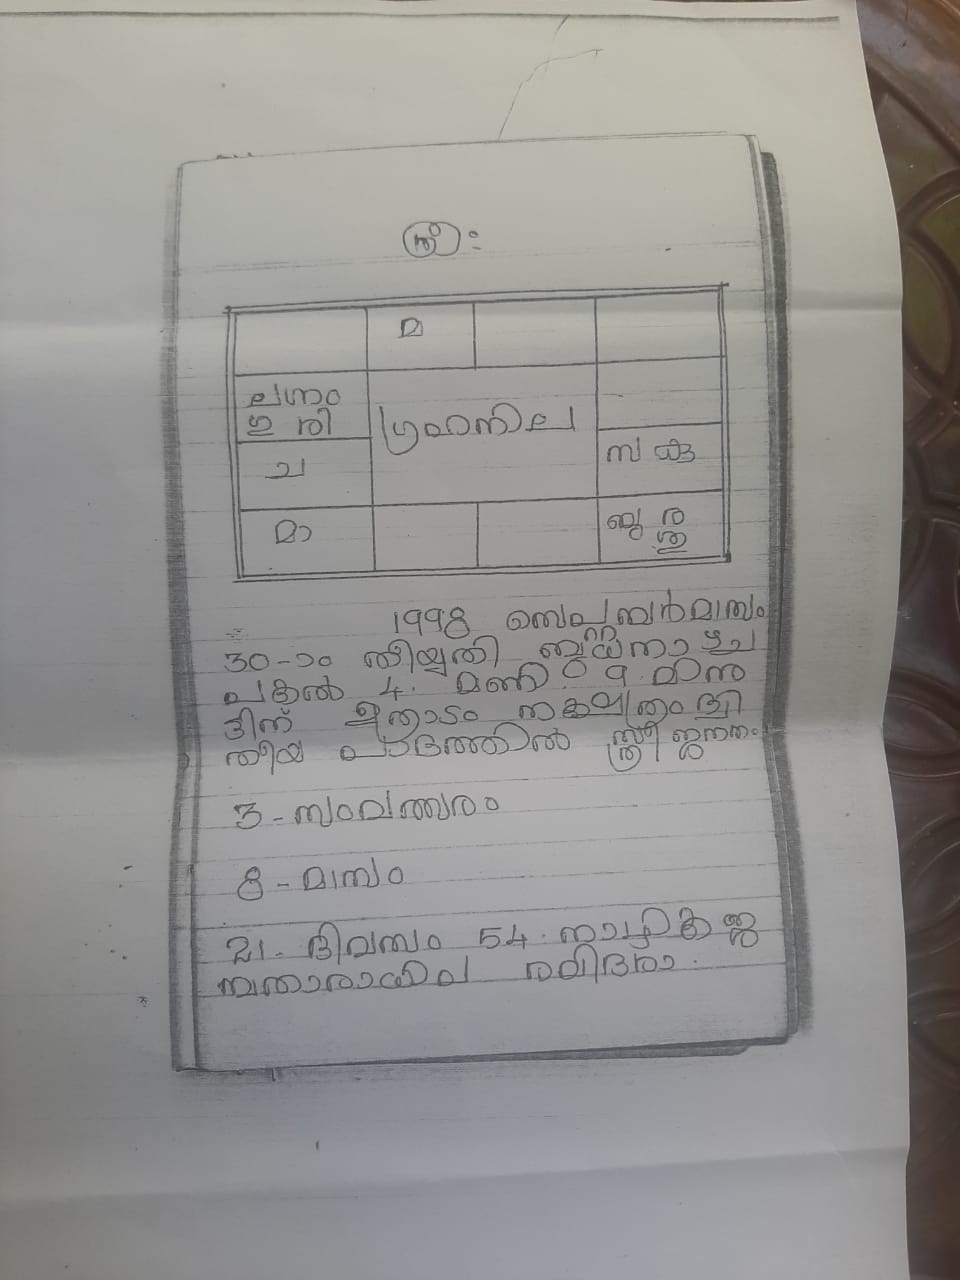 ശ്രീ:
മ
ലഗ്നം
ഗു ശി
ഗ്രഹനില
ച
സ കു
മാ
ബു ര
ശു
1998 സെപ്തംബർമാസം
30-ാം തീയ്യതി ബുധനാഴ്ച
പകൽ 4. മണി. 9 മിനു
ട്ടിന് ഉത്രാടം നക്ഷത്രം ദ്വി
തീയ പാദത്തിൽ സ്ത്രീ ജനനം
3 - സംവത്സരം
8 - മാസം
21. ദിവസം 54. നാഴിക ജ
നനാരായില രവിദശാ.